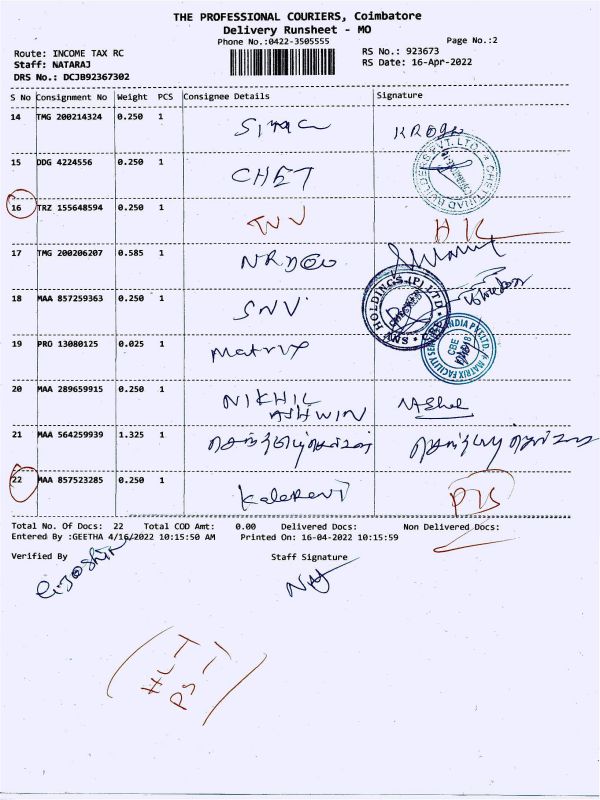 THE PROFESSIONAL COURIERS, Coimbatore
Delivery Runsheet - MO
Phone No.:0422-3505555 Page No.:2
Route: INCOME TAX RC RS No.: 923673
Staff: NATARAJ RS Date: 16-Apr-2022
DRS No.: DCJB92367302
S No Consignment No Weight PCS Consignee Details Signature
14 TMG 200214324 0.250 1
15 DDG 4224556 0.250 1 CHET
16 TRZ 155648594 0.250 1 HK
17 TMG 200206207 0.585 1
18 MAA 857259363 0.250 1 SNV
19 PRO 13080125 0.025 1 Matrix
20 MAA 289659915 0.250 1 NIKHIL
ASHWIN
21 MAA 564259939 1.325 1
22 MAA 857523285 0.250 1
Total No. Of Docs: 22 Total COD Amt: 0.00 Delivered Docs: Non Delivered Docs:
Entered By :GEETHA 4/16/2022 10:15:50 AM Printed On: 16-04-2022 10:15:59
Verified By Staff Signature